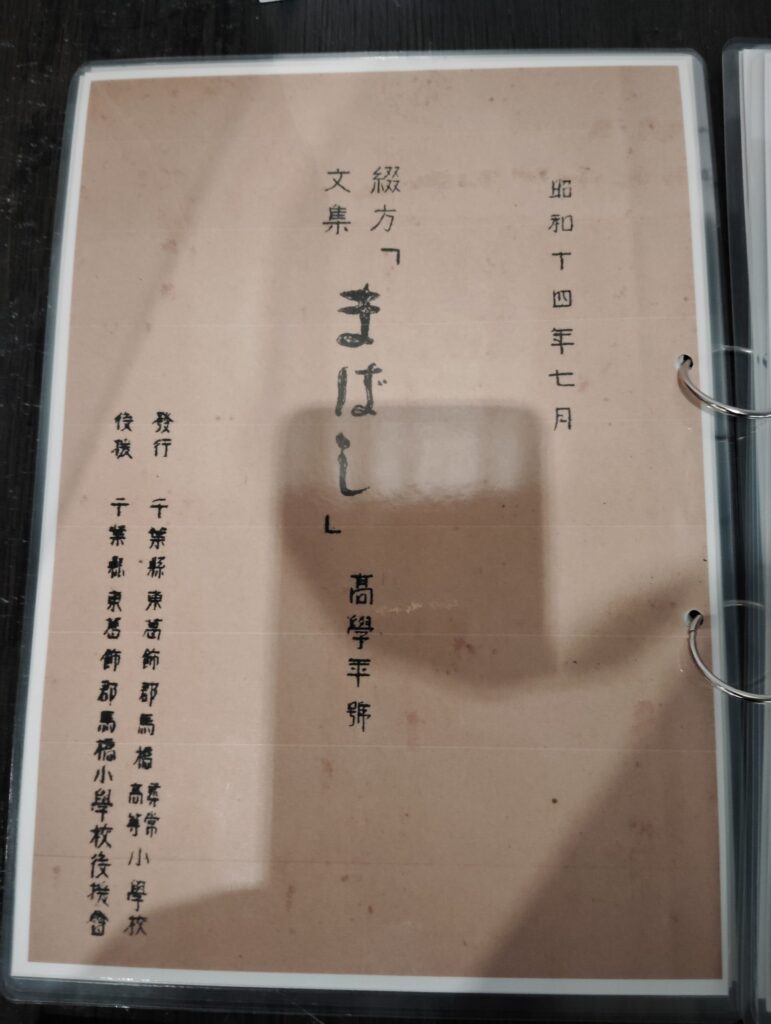 昭和十四年七月
綴方
文集
「まばし」
高學年號
發行　千葉縣東葛飾郡馬橋尋常高等小學校
後援　千葉縣東葛飾郡馬橋小學校後援會